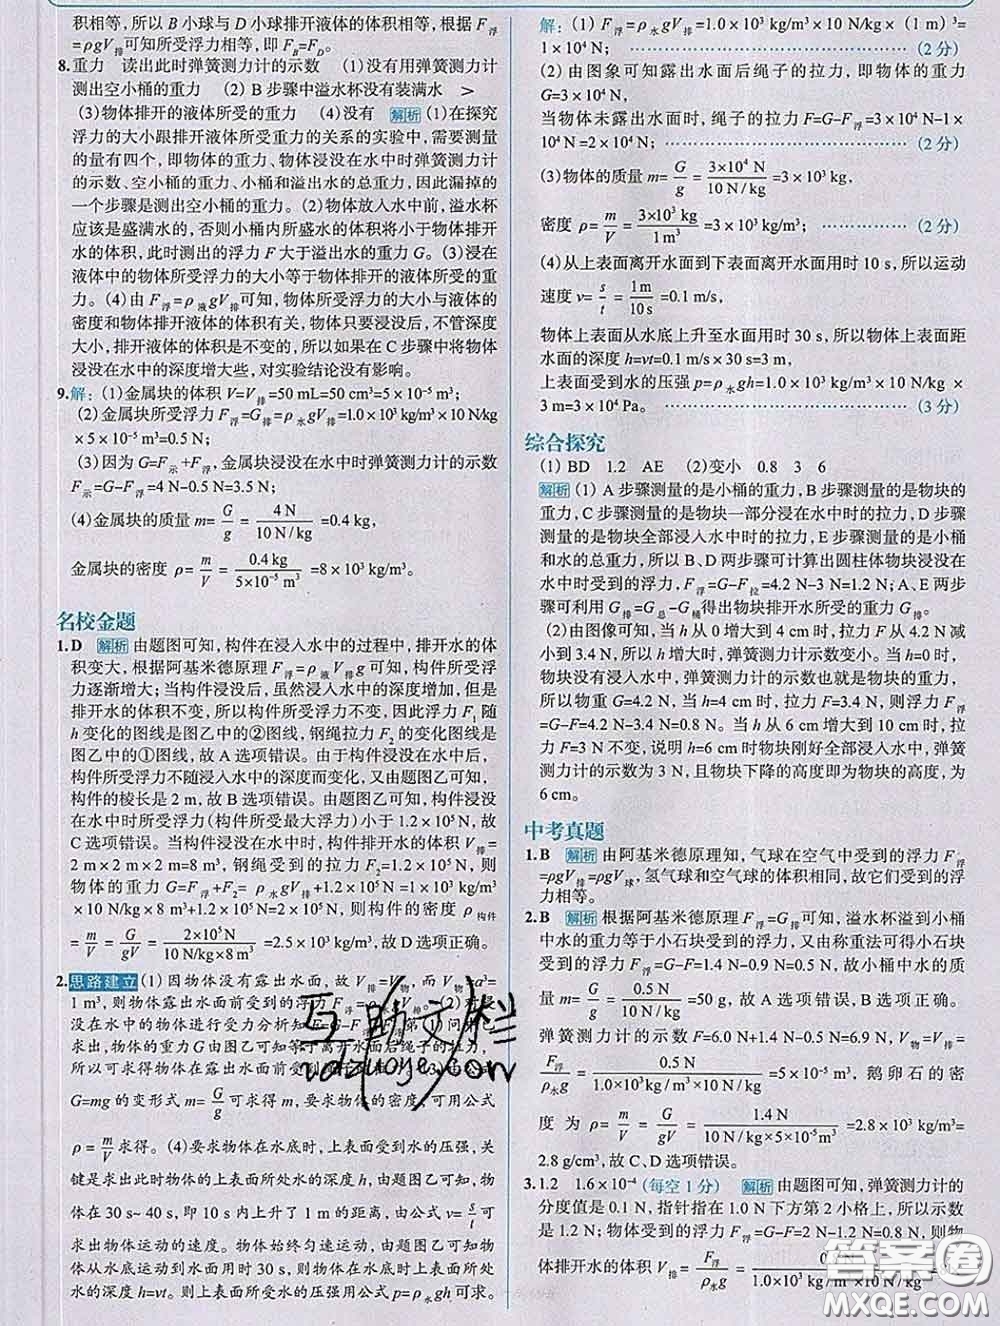 积相等，所以 B 小球与 D 小球排开液体的体积相等，根据 F浮
=ρgV排可知所受浮力相等，即 FB=FD。
8.重力 读出此时弹簧测力计的示数 (1)没有用弹簧测力计
测出空小桶的重力 (2) B 步骤中溢水杯没有装满水 >
(3)物体排开的液体所受的重力 (4)没有 解析 (1)在探究
浮力的大小跟排开液体所受重力的关系的实验中，需要测量
的量有四个，即物体的重力、物体浸没在水中时弹簧测力计
的示数、空小桶的重力、小桶和溢出水的总重力，因此漏掉的
一个步骤是测出空小桶的重力。(2)物体放入水中前，溢水杯
应该是盛满水的，否则小桶内所盛水的体积将小于物体排开
水的体积，此时测出的浮力 F 大于溢出水的重力 G。(3)浸在
液体中的物体所受浮力的大小等于物体排开的液体所受的重
力。(4)由 F浮=ρ液gV排可知，物体所受浮力的大小与液体的
密度和物体排开液体的体积有关，物体只要浸没后，不管深度
大小，排开液体的体积是不变的，所以如果在 C 步骤中将物体
浸没在水中的深度增大些，对实验结论没有影响。
9.解：(1)金属块的体积 V=V排=50 mL=50 cm³=5×10⁻⁵ m³；
(2)金属块所受浮力 F浮=G排=ρ水gV排=1.0×10³ kg/m³×10 N/kg
×5×10⁻⁵ m³=0.5 N；
(3)因为 G=F示+F浮，金属块浸没在水中时弹簧测力计的示数
F示=G-F浮=4 N-0.5 N=3.5 N；
(4)金属块的质量 m=G/g=4 N/10 N/kg=0.4 kg，
金属块的密度 ρ=m/V=0.4 kg/5×10⁻⁵ m³=8×10³ kg/m³。
名校金题
1.D 解析 由题图可知，构件在浸入水中的过程中，排开水的体
积变大，根据阿基米德原理 F浮=ρ液V排g 可知，构件所受浮
力逐渐增大；当构件浸没后，虽然浸入水中的深度增加，但是
排开水的体积不变，所以构件所受浮力不变，因此浮力 F1 随
h 变化的图线是图乙中的②图线，钢绳拉力 F2 的变化图线是
图乙中的①图线，故 A 选项错误。由于构件浸没在水中后，
构件所受浮力不随浸入水中的深度而变化，又由题图乙可知，
构件的棱长是 2 m，故 B 选项错误。由题图乙可知，构件浸没
在水中时所受浮力（构件所受最大浮力）小于 1.2×10⁵ N，故
C 选项错误。当构件浸没在水中时，构件排开水的体积 V排=
2 m×2 m×2 m=8 m³，钢绳受到的拉力 F2=1.2×10⁵ N，则
物体的重力 G=F浮+F2=ρ水gV排+1.2×10⁵ N=1×10³ kg/m³
×10 N/kg×8 m³+1.2×10⁵ N=2×10⁵ N，则构件的密度 ρ构件
=m/V=G/gV=2×10⁵ N/10 N/kg×8 m³=2.5×10³ kg/m³，故 D 选项正确。
2.思路建立 (1)因物体没有露出水面，故 V排=V物，而 V物=a³=
1 m³，则物体露出水面前受到的浮力 F浮=ρ水gV排。(2)对浸
没在水中的物体进行受力分析知 第(1)问
求出，物体的重力 G 由图乙可知等于离开水面后绳子的拉力，
所以可求得物体露出水面前绳子的拉力。(3)由公式
G=mg 的变形式 m=G/g 可求得 m，要求物体的密度，可用公式
ρ=m/V 求得。(4)要求物体在水底时，上表面受到水的压强，关
键是求出此时物体的上表面所处水的深度 h，由图乙可知，物
体在 30 s~40 s，即 10 s 内上升了 1 m 的距离，由公式 v=s/t 可
求出物体运动的速度。物体始终匀速运动，由题图乙可知物
体从水底运动到上表面露出水面用时 30 s，则上表面所处水
的深度 h=vt。则上表面所受水的压强用公式 p=ρ水gh 可求。
解：(1) F浮=ρ水gV排=1.0×10³ kg/m³×10 N/kg×(1 m)³=
1×10⁴ N；(2 分)
(2)由图象可知露出水面后绳子的拉力，即物体的重力
G=3×10⁴ N，
当物体未露出水面时，绳子的拉力 F=G-F浮=3×10⁴ N-1×
10⁴ N=2×10⁴ N；(2 分)
(3)物体的质量 m=G/g=3×10⁴ N/10 N/kg=3×10³ kg，
密度 ρ=m/V=3×10³ kg/1 m³=3×10³ kg/m³；(2 分)
(4)从上表面离开水面到下表面离开水面用时 10 s，所以运动
速度 v=s/t=1m/10s=0.1 m/s，
物体上表面从水底上升至水面用时 30 s，所以物体上表面距
水面的深度 h=vt=0.1 m/s×30 s=3 m，
上表面受到水的压强 p=ρ水gh=1.0×10³ kg/m³×10 N/kg×
3 m=3×10⁴ Pa。(3 分)
综合探究
(1) BD 1.2 AE (2)变小 0.8 3 6
解析 (1) A 步骤测量的是小桶的重力，B 步骤测量的是物块的
重力，C 步骤测量的是物块一部分浸在水中时的拉力，D 步骤
测量的是物块全部浸入水中时的拉力，E 步骤测量的是小桶
和水的总重力，所以 B、D 两步骤可计算出圆柱体物块浸没在
水中时受到的浮力，F浮=G-F拉=4.2 N-3 N=1.2 N；A、E 两步
骤可利用 G排=G总-G桶得出物块排开水所受的重力 G排。
(2)由图像可知，当 h 从 0 增大到 4 cm 时，拉力 F 从 4.2 N 减
小到 3.4 N，所以 h 增大时，弹簧测力计示数变小。当 h=0 时，
物块没有浸入水中，弹簧测力计的示数也就是物块的重力，
所以物重 G=4.2 N，当 h=4 cm 时，拉力 F=3.4 N，则浮力 F浮
=G-F=4.2 N-3.4 N=0.8 N。当 h 从 6 cm 增大到 10 cm 时，拉
力 F=3 N 不变，说明 h=6 cm 时物块刚好全部浸入水中，弹簧
测力计的示数为 3 N，且物块下降的高度即为物块的高度，为
6 cm。
中考真题
1.B 解析 由阿基米德原理知，气球在空气中受到的浮力 F浮
=ρgV排=ρgV球，氢气球和空气球的体积相同，故它们受到的浮
力相等。
2.B 解析 根据阿基米德原理 F浮=G排可知，溢水杯溢到小桶
中水的重力等于小石块受到的浮力，又由称重法可得小石块
受到的浮力 F浮=G-F=1.4 N-0.9 N=0.5 N，故小桶中水的质
量 m=G/g=0.5 N/10 N/kg=50 g，故 A 选项错误，B 选项正确。
弹簧测力计的示数 F=6.0 N+1.4 N=7.4 N，V物=V排=
F浮/ρ水g=0.5 N/1.0×10³ kg/m³×10 N/kg=5×10⁻⁵ m³，鹅卵石的密
度为 ρ=m/V=G/gV=1.4 N/10 N/kg×5×10⁻⁵ m³=2.8×10³ kg/m³=
2.8 g/cm³，故 C、D 选项错误。
3.1.2 1.6×10⁻⁴（每空 1 分） 解析 由题图可知，弹簧测力计的
分度值是 0.1 N，指针指在 1.0 N 下方第 2 小格上，所以示数
是 1.2 N；物体受到的浮力 F浮=G-F=2 N-1.2 N=0.8 N，则物
体排开水的体积 V排=F浮/ρ水g=0.8 N/1.0×10³ kg/m³×10 N/kg
互助文栏
答案圈
MXQE.COM